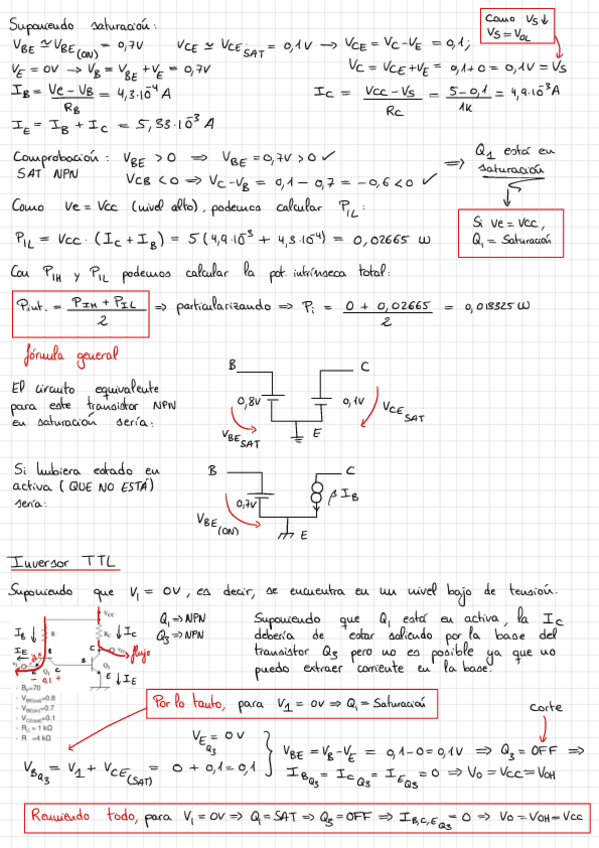 Suponiendo saturación:
Como Vs↓
Vs = VOL
VBE ≃ VBE(ON) = 0,7V VCE ≃ VCE SAT = 0,1V → VCE = VC - VE = 0,1;
VE = 0V → VB = VBE + VE = 0,7V VC = VCE + VE = 0,1 + 0 = 0,1V = Vs
IB = (Ve - VB)/RB = 4,3·10⁻⁴ A IC = (VCC - Vs)/RC = (5 - 0,1)/1K = 4,9·10⁻³ A
IE = IB + IC = 5,33·10⁻³ A
Comprobación: VBE > 0 ⇒ VBE = 0,7V > 0 ✓
SAT NPN VCB < 0 ⇒ VC - VB = 0,1 - 0,7 = -0,6 < 0 ✓
⇒ Q1 está en
saturación
Como Ve = Vcc (nivel alto), podemos calcular PIL:
Si Ve = Vcc,
Q1 = Saturación
PIL = Vcc · (IC + IB) = 5 (4,9·10⁻³ + 4,3·10⁻⁴) = 0,02665 W
Con PIH y PIL podemos calcular la pot. intrínseca total:
Pint. = (PIH + PIL)/2 ⇒ particularizando ⇒ Pi = (0 + 0,02665)/2 = 0,013325 W
fórmula general
El circuito equivalente
para este transistor NPN
en saturación sería:
B C
0,8V 0,1V VCE SAT
VBE SAT E
Si hubiera estado en
activa (QUE NO ESTÁ)
sería:
B C
0,7V β IB
VBE(ON) E
Inversor TTL
Suponiendo que V1 = 0V, es decir, se encuentra en un nivel bajo de tensión.
Q1 ⇒ NPN
Q3 ⇒ NPN
IB ↓ ↓ IC
flujo
IE
↓ IE
Suponiendo que Q1 está en activa, la IC
debería de estar saliendo por la base del
transistor Q3 pero no es posible ya que no
puedo extraer corriente en la base.
- BF=70
- VBE(sat)=0.8
- VBE(on)=0.7
- VCE(sat)=0.1
- RC = 1 kΩ
- R =4 kΩ
Por lo tanto, para V1 = 0V ⇒ Q1 = Saturación
corte
VE Q3 = 0V
VBQ3 = V1 + VCE(SAT) = 0 + 0,1 = 0,1
VBE = VB - VE = 0,1 - 0 = 0,1V ⇒ Q3 = OFF ⇒
IBQ3 = ICQ3 = IEQ3 = 0 ⇒ Vo = Vcc = VOH
Resumiendo todo, para V1 = 0V ⇒ Q1 = SAT ⇒ Q3 = OFF ⇒ IB,C,E Q3 = 0 ⇒ Vo = VOH = Vcc